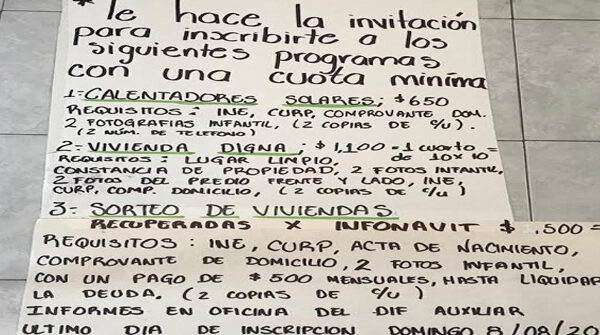 * le hace la invitación
para inscribirte a los
siguientes programas
con una cuota mínima
1.- CALENTADORES SOLARES; $650
REQUISITOS: INE, CURP, COMPROVANTE DOM.
2 FOTOGRAFIAS INFANTIL, (2 COPIAS DE c/u).
(2 NÚM. DE TELEFONO)
2.- VIVIENDA DIGNA; $1,100 = 1 cuarto
de 10x10
REQUISITOS: LUGAR LIMPIO,
CONSTANCIA DE PROPIEDAD, 2 FOTOS INFANTIL,
2 FOTOS DEL PREDIO FRENTE Y LADO, INE,
CURP, COMP. DOMICILIO, (2 COPIAS DE c/u)
3.- SORTEO DE VIVIENDAS
RECUPERADAS X INFONAVIT $1.500=
REQUISITOS: INE, CURP, ACTA DE NACIMIENTO,
COMPROVANTE DE DOMICILIO, 2 FOTOS INFANTIL,
CON UN PAGO DE $500 MENSUALES, HASTA LIQUIDAR
LA DEUDA. (2 COPIAS DE c/u)
INFORMES EN OFICINA DEL DIF AUXILIAR
ULTIMO DIA DE INSCRIPCION DOMINGO 8/08/20